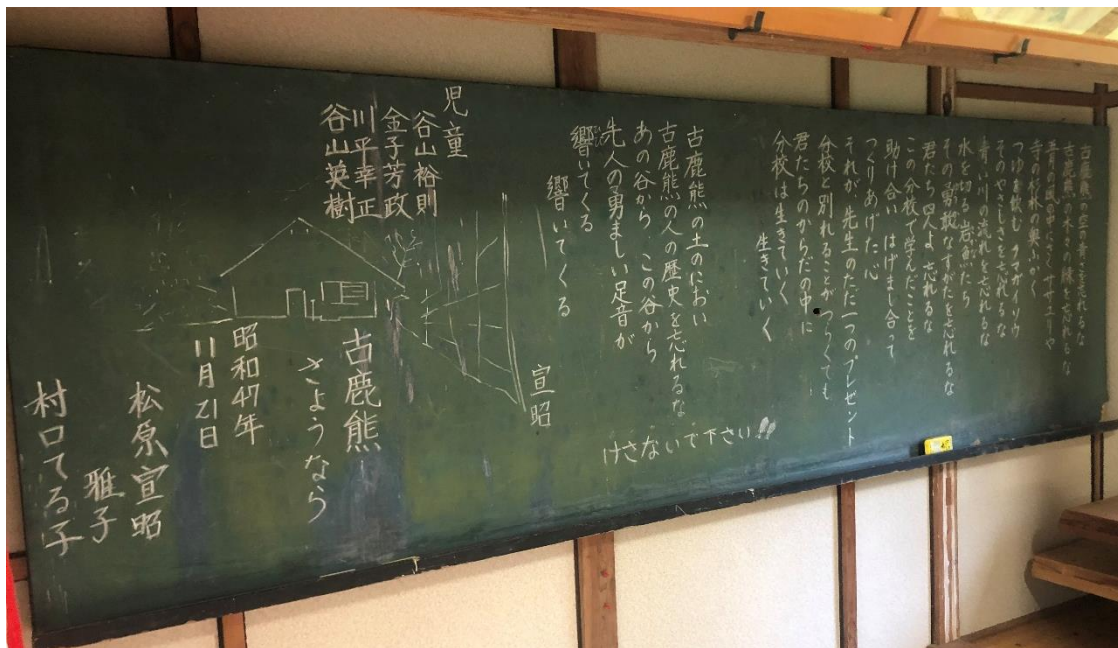 古鹿熊の空の青さを忘れるな
古鹿熊の木々の緑を忘れるな
寺の杉木の奥ふかく
つゆを飲む クマガイソウ
そのやさしさを忘れるな
青い川の流れを忘れるな
水を切る岩魚たち
その勇敢なすがたを忘れるな
君たち四人よ 忘れるな
この分校で学んだことを
助け合い はげまし合って
つくりあげた心
それが 先生のただ一つのプレゼント
分校と別れることが つらくても
君たちのからだの中に
分校は生きていく
生きていく
古鹿熊の土のにおい
古鹿熊の人の歴史を忘れるな
あの谷から この谷から
先人の勇ましい足音が
響いてくる
響いてくる
宣昭
けさないで下さい!!
児童
谷山裕則
金子芳政
川平幸正
谷山英樹
古鹿熊
さようなら
昭和47年
11月21日
松原宣昭
雅子
村口てる子